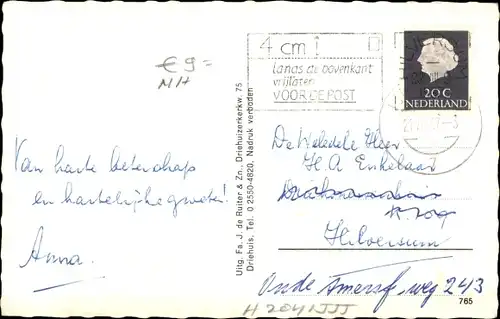 € 9=
N/H
4 cm
langs de bovenkant
vrijlaten
VOOR DE POST
20 C
NEDERLAND
Van harte beterschap
en hartelijke groeten!
Anna.
Uitg. Fa. J. de Ruiter & Zn., Driehuizerkerkw. 75
Driehuis. Tel. 0 2550-4820. Nadruk verboden
De Weledele Heer
H. A. Enkelaar
Hilversum
Oude Amersf. weg 243
765